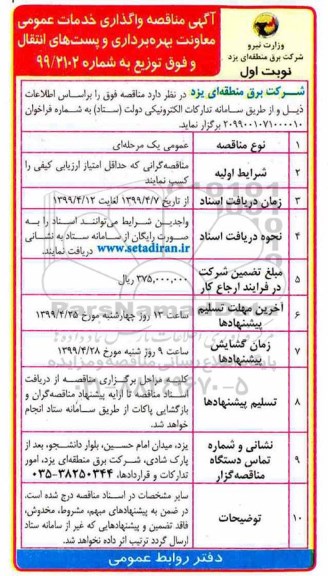 آگهی مناقصه واگذاری خدمات عمومی
معاونت بهره‌برداری و پست‌های انتقال
و فوق توزیع به شماره ۹۹/۲۱۰۲
وزارت نیرو
شرکت برق منطقه‌ای یزد
نوبت اول
شرکت برق منطقه‌ای یزد در نظر دارد مناقصه فوق را براساس اطلاعات
ذیل و از طریق سامانه تدارکات الکترونیکی دولت (ستاد) به شماره فراخوان
۲۰۹۹۰۰۱۰۷۱۰۰۰۰۱۰ برگزار نماید.
۱ نوع مناقصه عمومی یک مرحله‌ای
۲ شرایط اولیه مناقصه‌گرانی که حداقل امتیاز ارزیابی کیفی را
کسب نمایند
۳ زمان دریافت اسناد از تاریخ ۱۳۹۹/۴/۷ لغایت ۱۳۹۹/۴/۱۲
۴ نحوه دریافت اسناد واجدین شرایط می‌توانند اسناد را به
صورت رایگان از سامانه ستاد به نشانی
www.setadiran.ir دریافت نمایند.
۵ مبلغ تضمین شرکت
در فرایند ارجاع کار
۳۷۵,۰۰۰,۰۰۰ ریال
۶ آخرین مهلت تسلیم
پیشنهادها
ساعت ۱۳ روز چهارشنبه مورخ ۱۳۹۹/۴/۲۵
۷ زمان گشایش
پیشنهادها
ساعت ۹ روز شنبه مورخ ۱۳۹۹/۴/۲۸
۸ تسلیم پیشنهادها کلیه مراحل برگزاری مناقصه از دریافت
اسناد مناقصه تا ارایه پیشنهاد مناقصه‌گران و
بازگشایی پاکات از طریق سامانه ستاد انجام
خواهد شد.
۹ نشانی و شماره
تماس دستگاه
مناقصه‌گزار
یزد، میدان امام حسین، بلوار دانشجو، بعد از
پارک شادی، شرکت برق منطقه‌ای یزد، امور
تدارکات و قراردادها، ۳۸۲۵۰۳۴۴-۰۳۵
۱۰ توضیحات سایر مشخصات در اسناد مناقصه درج شده است.
در ضمن به پیشنهادهای مبهم، مشروط، مخدوش،
فاقد تضمین و پیشنهادهایی که غیر از سامانه ستاد
ارسال گردد ترتیب اثر داده نخواهد شد.
دفتر روابط عمومی